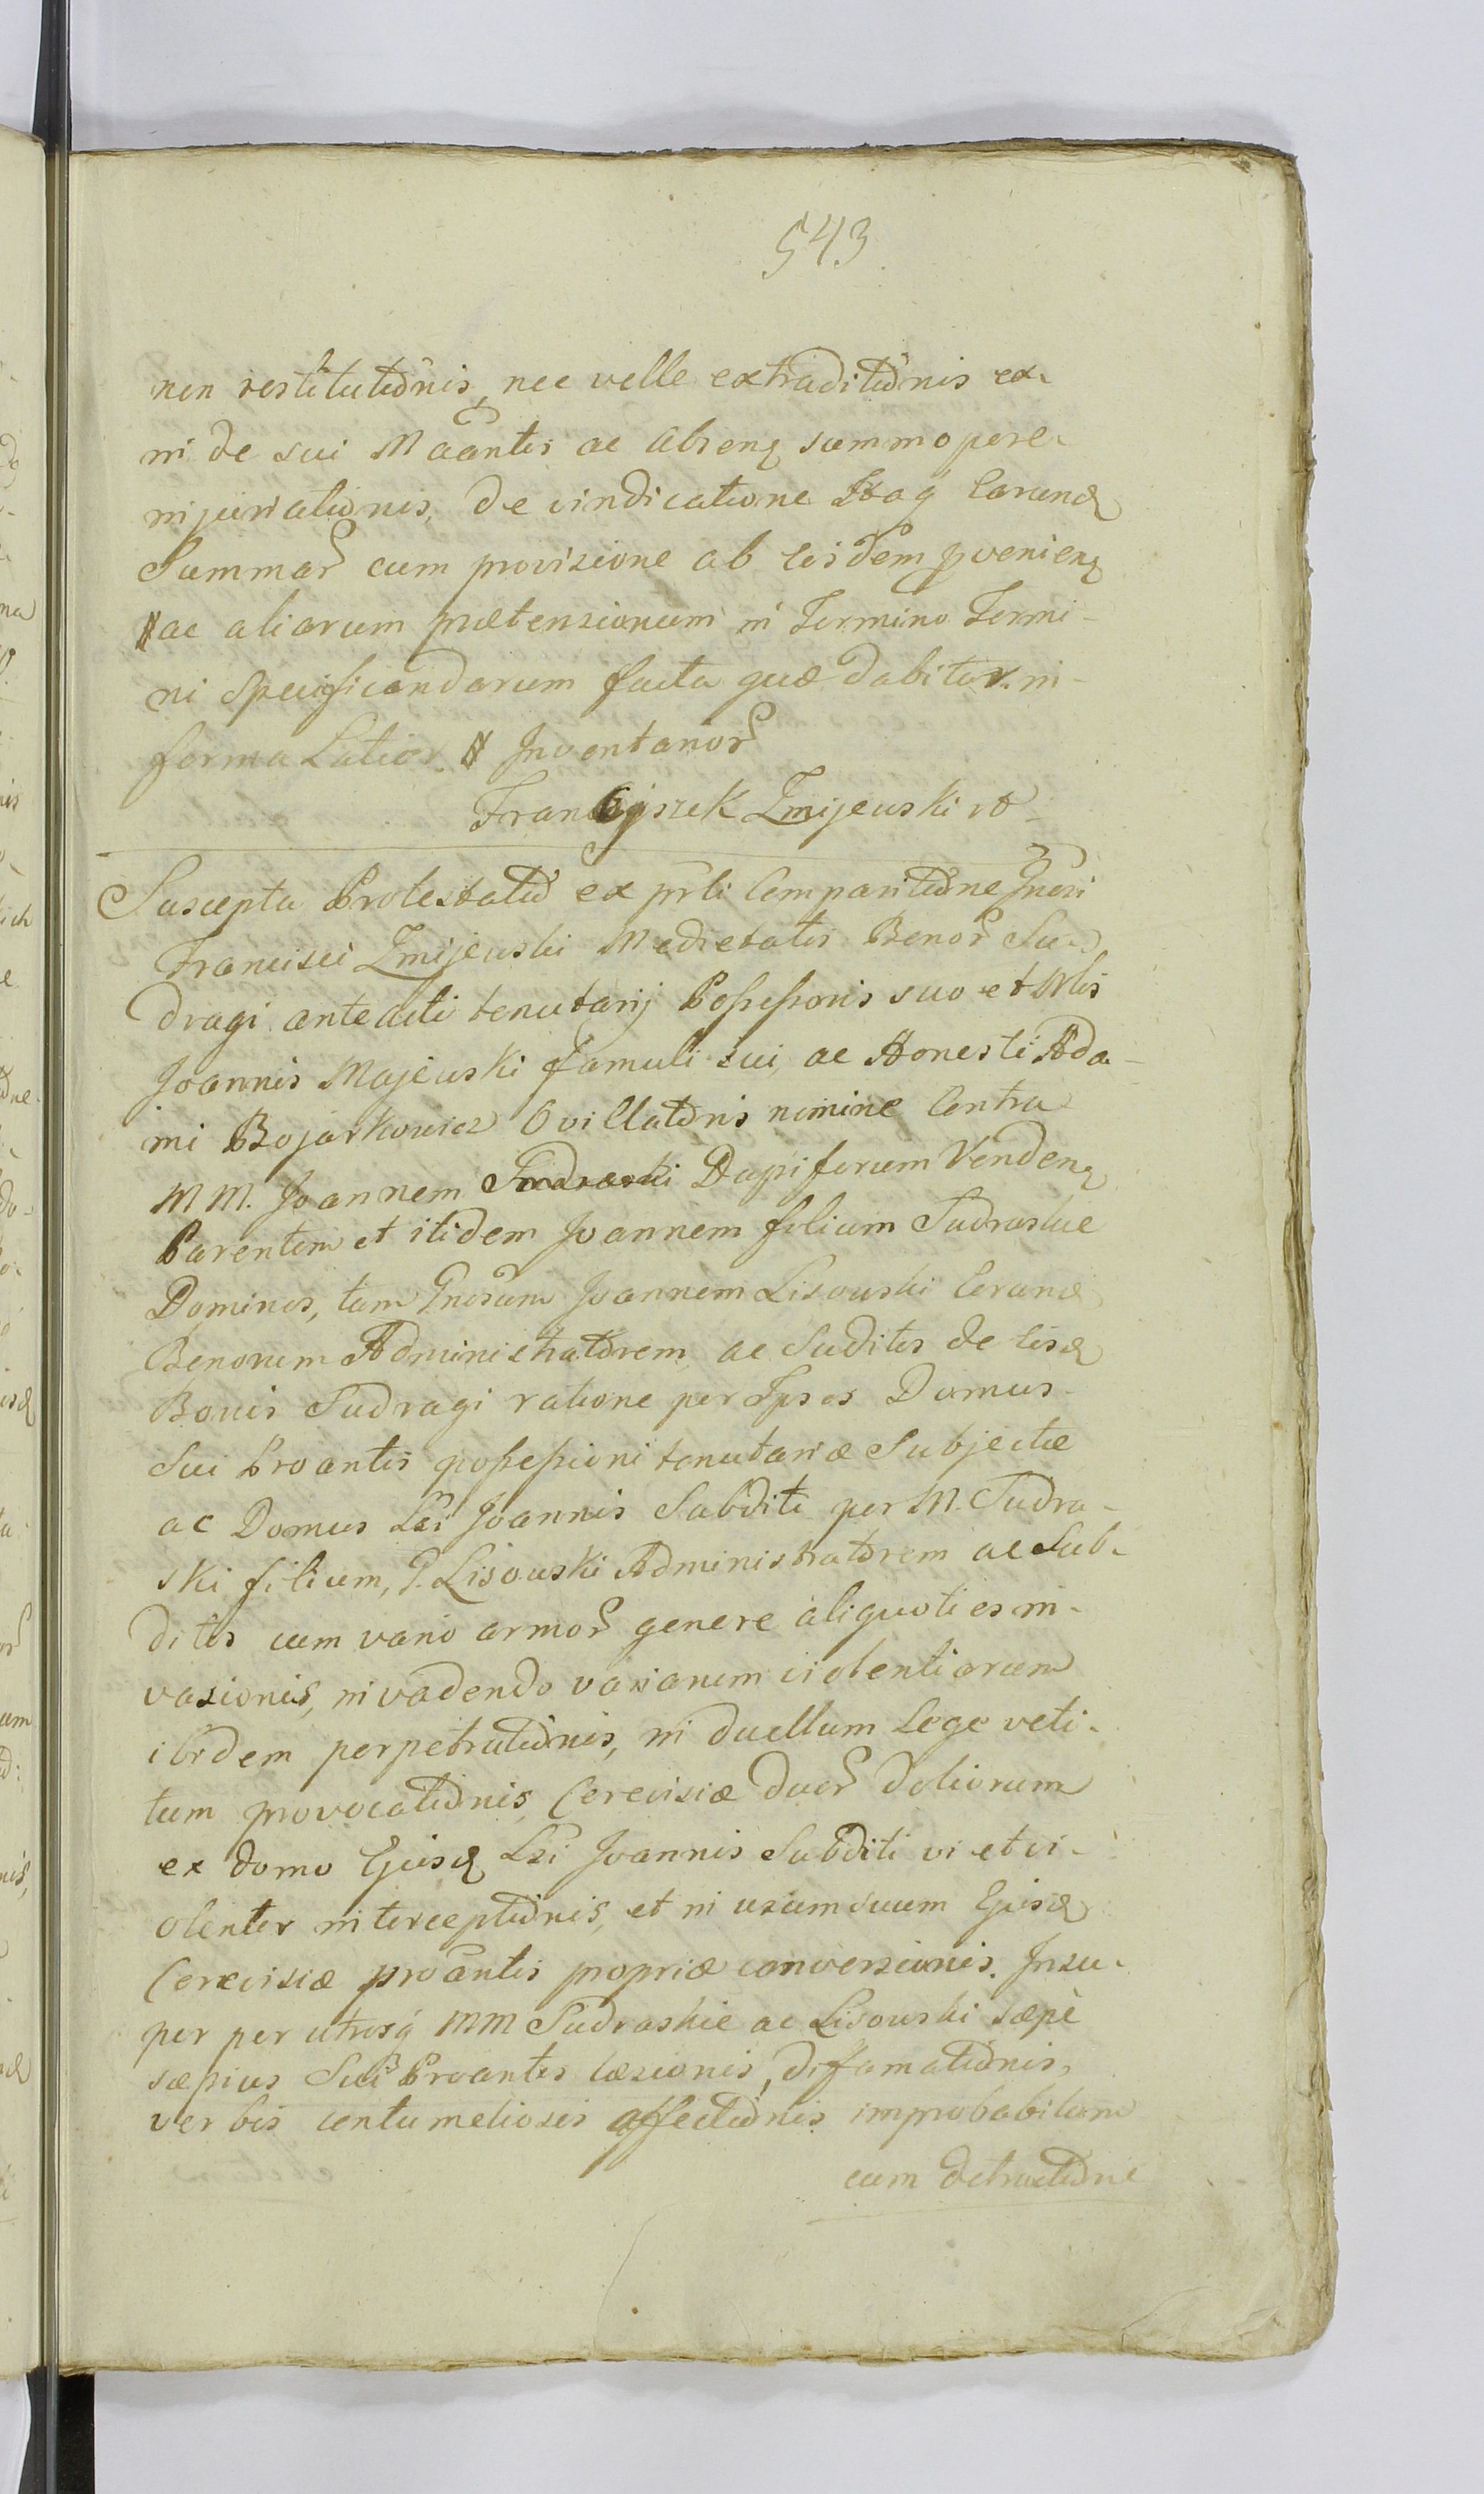 543
non restitutionis, nec velle extraditionis ex-
in de sui Maantis ac absenq summopere
injuriationis, de vindicatione Itaq Earund
Summar cum provisione ab eisdem pvenienq
ac aliarum prætensionum in Termino Termi-
ni specificandarum facta quæ dabitur in
forma Latior Inventarior
Franciszek Zmijewski
Suscepta Protestatio ex prli Comparitione Gnosi
Francisci Zmijewski Medietatis Bonor Su-
dragi anteacti tenutarij Possessoris suo et Nlis
Joannis Majewski famuli sui, ac Honesti Ada-
mi Bojarkowicz Ovillatoris nomine Contra
MM. Joannem Sudraski Dapiferum Vendenq
Parentem et itidem Joannem filium Sudraskie
Dominos, tum Gnosum Joannem Lisowski Eorund
Bonorum Administratorem, ac Suditos de eisd
Bonis Sudragi ratione per Ipsos Domus
Sui Proantis possessioni tenutariæ Subjectæ
ac Domus Lai Joannis Subditi per M. Sudra-
ski filium, G. Lisowski Administratorem ac Sub-
ditos cum vario armor genere aliquoties in-
vasionis, invadendo variarum violentiarum
ibidem perpetrationis, in duellum Lege veti-
tum provocationis, Cerevisiæ duor doliorum
ex domo Ejusd Lai Joannis Subditi vi et vi-
olenter interceptionis, et in usum suum Ejusd
Cerevisiæ proantis propriæ conversionis. Insu-
per per utrosq MM Sudraskie ac Lisowski sæpè
sæpius Sui Proantis læsionis, difamationis,
verbis contumeliosis affectionis improbabilem
cum detractione